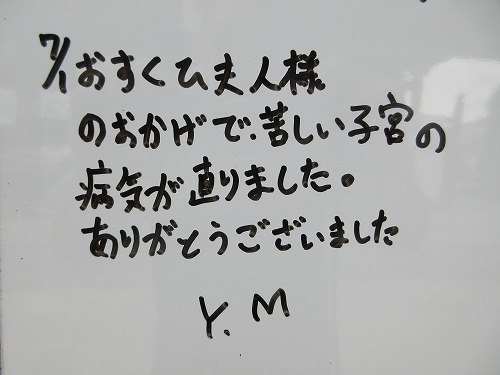 7/1 おすくひ夫人様
のおかげで、苦しい子宮の
病気が直りました。
ありがとうございました
Y. M